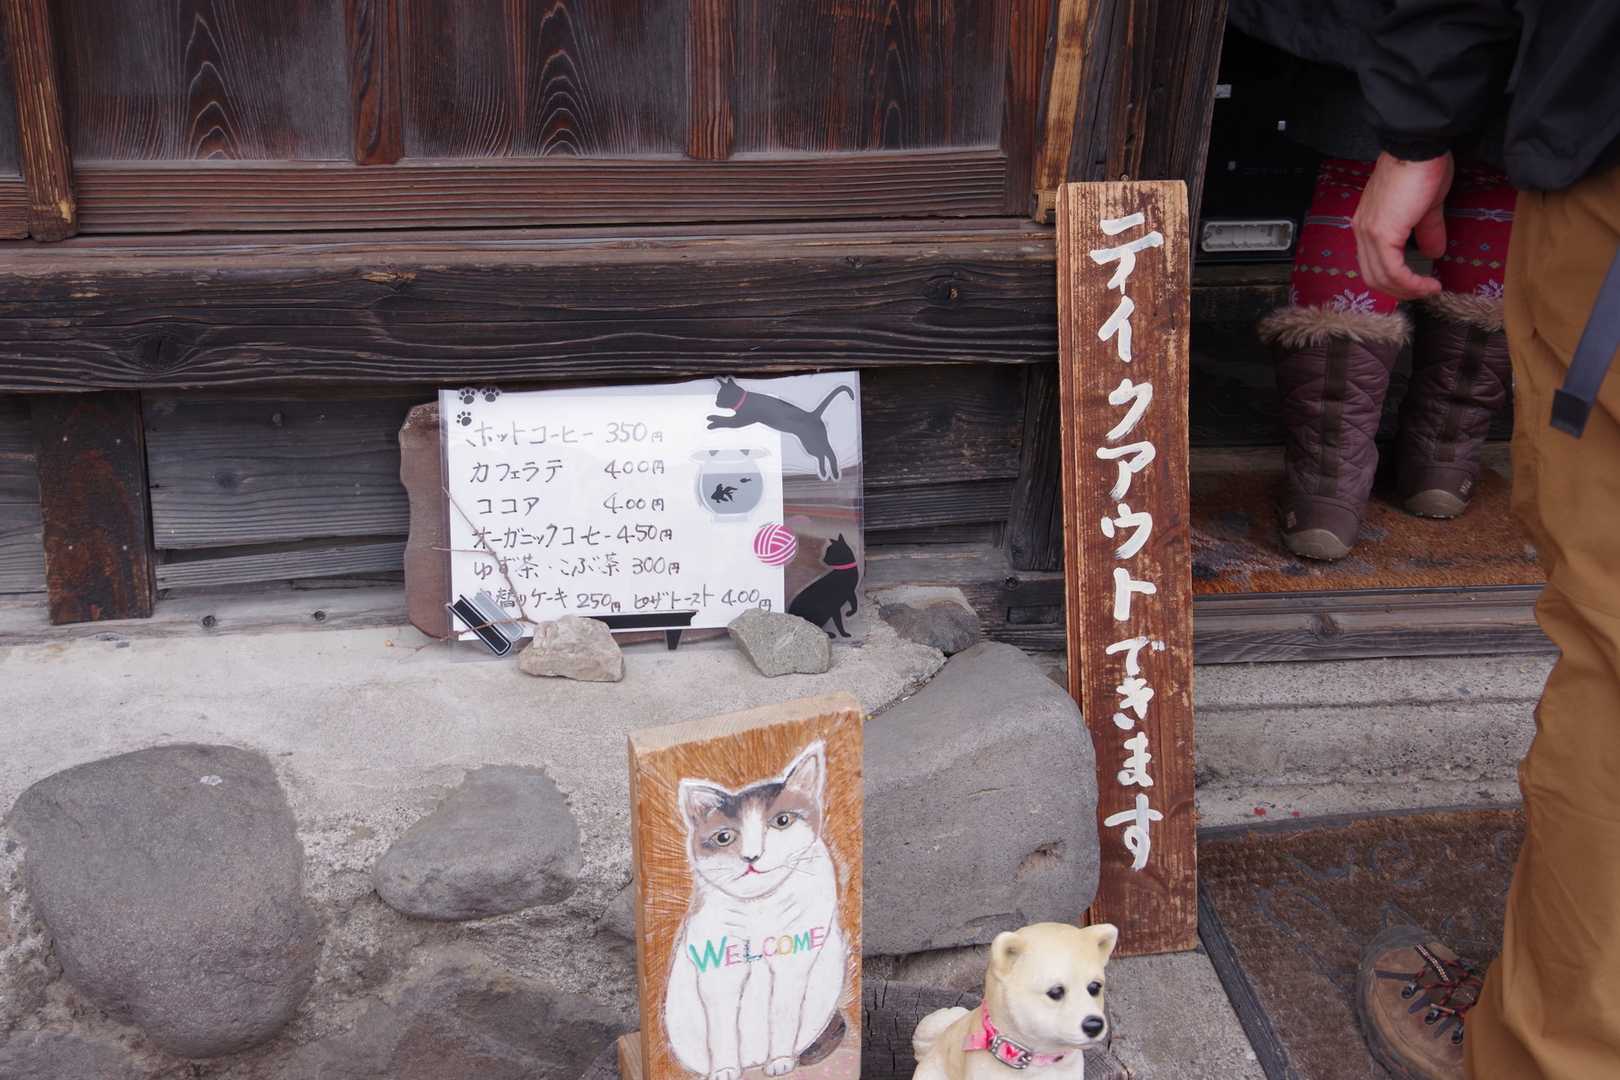 ホットコーヒー 350円
カフェラテ 400円
ココア 400円
オーガニックコーヒー 450円
ゆず茶・こぶ茶 300円
替りケーキ 250円 ピザトースト 400円
テイクアウトできます
WELCOME